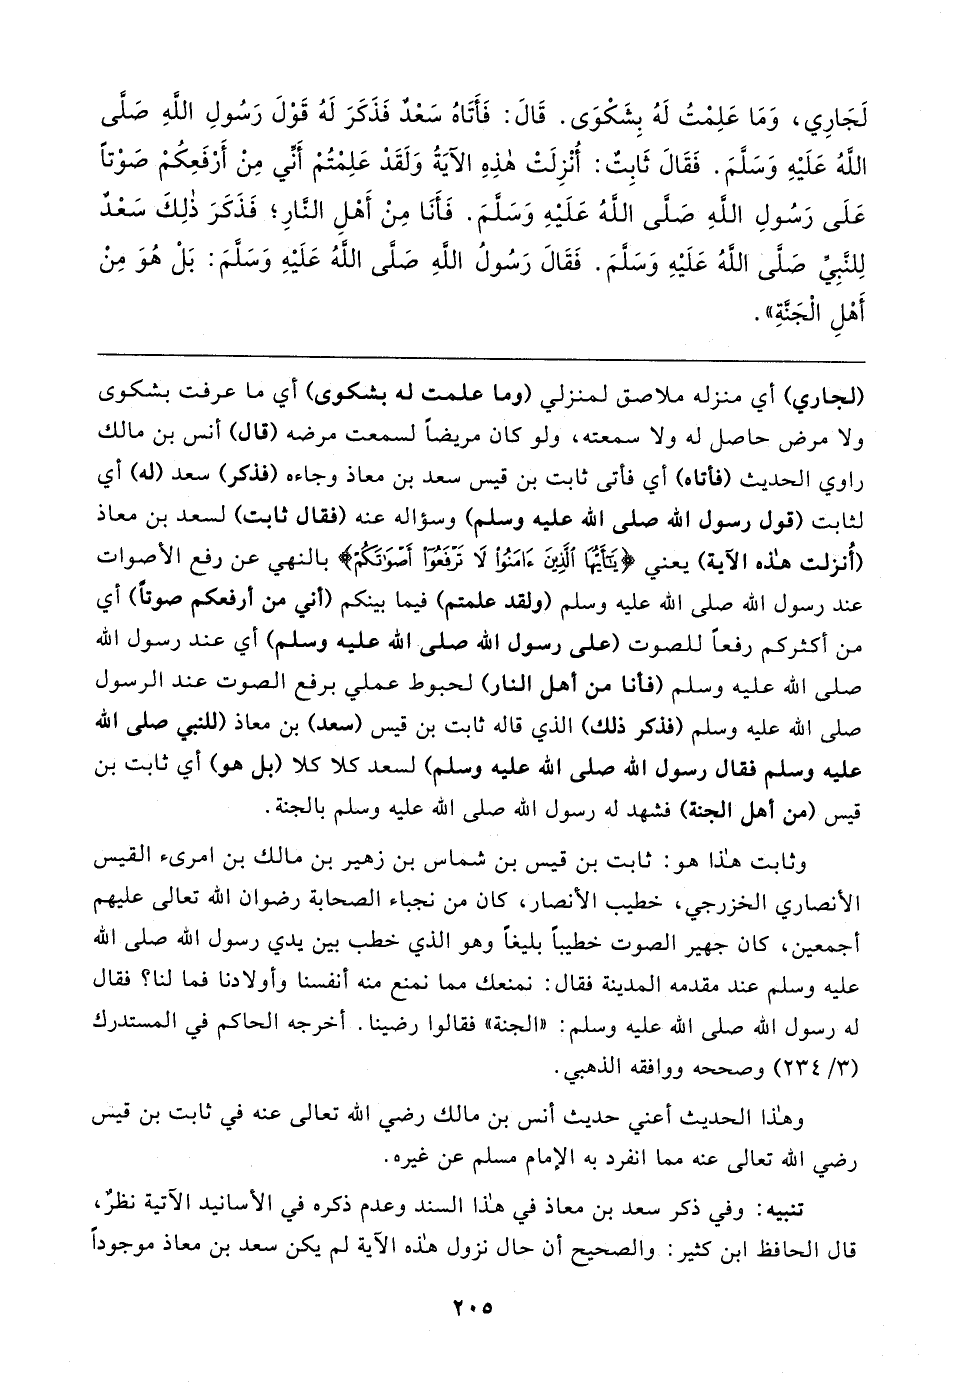 لَجَارِي، وَمَا عَلِمْتُ لَهُ بِشَكْوَى. قَالَ: فَأَتَاهُ سَعْدٌ فَذَكَرَ لَهُ قَوْلَ رَسُولِ اللَّهِ صَلَّى
اللَّهُ عَلَيْهِ وَسَلَّمَ. فَقَالَ ثَابِتٌ: أُنْزِلَتْ هٰذِهِ الآيَةُ وَلَقَدْ عَلِمْتُمْ أَنِّي مِنْ أَرْفَعِكُمْ صَوْتاً
عَلَى رَسُولِ اللَّهِ صَلَّى اللَّهُ عَلَيْهِ وَسَلَّمَ. فَأَنَا مِنْ أَهْلِ النَّارِ؛ فَذَكَرَ ذٰلِكَ سَعْدٌ
لِلنَّبِيِّ صَلَّى اللَّهُ عَلَيْهِ وَسَلَّمَ. فَقَالَ رَسُولُ اللَّهِ صَلَّى اللَّهُ عَلَيْهِ وَسَلَّمَ: بَلْ هُوَ مِنْ
أَهْلِ الْجَنَّةِ».
(لجاري) أي منزله ملاصق لمنزلي (وما علمت له بشكوى) أي ما عرفت بشكوى
ولا مرض حاصل له ولا سمعته، ولو كان مريضاً لسمعت مرضه (قال) أنس بن مالك
راوي الحديث (فأتاه) أي فأتى ثابت بن قيس سعد بن معاذ وجاءه (فذكر) سعد (له) أي
لثابت (قول رسول الله صلى الله عليه وسلم) وسؤاله عنه (فقال ثابت) لسعد بن معاذ
(أُنزلت هذه الآية) يعني ﴿يَٰٓأَيُّهَا ٱلَّذِينَ ءَامَنُوا۟ لَا تَرْفَعُوٓا۟ أَصْوَٰتَكُمْ﴾ بالنهي عن رفع الأصوات
عند رسول الله صلى الله عليه وسلم (ولقد علمتم) فيما بينكم (أني من أرفعكم صوتاً) أي
من أكثركم رفعاً للصوت (على رسول الله صلى الله عليه وسلم) أي عند رسول الله
صلى الله عليه وسلم (فأنا من أهل النار) لحبوط عملي برفع الصوت عند الرسول
صلى الله عليه وسلم (فذكر ذلك) الذي قاله ثابت بن قيس (سعد) بن معاذ (للنبي صلى الله
عليه وسلم فقال رسول الله صلى الله عليه وسلم) لسعد كلا كلا (بل هو) أي ثابت بن
قيس (من أهل الجنة) فشهد له رسول الله صلى الله عليه وسلم بالجنة.
وثابت هٰذا هو: ثابت بن قيس بن شماس بن زهير بن مالك بن امرىء القيس
الأنصاري الخزرجي، خطيب الأنصار، كان من نجباء الصحابة رضوان الله تعالى عليهم
أجمعين، كان جهير الصوت خطيباً بليغاً وهو الذي خطب بين يدي رسول الله صلى الله
عليه وسلم عند مقدمه المدينة فقال: نمنعك مما نمنع منه أنفسنا وأولادنا فما لنا؟ فقال
له رسول الله صلى الله عليه وسلم: «الجنة» فقالوا رضينا. أخرجه الحاكم في المستدرك
(٣/ ٢٣٤) وصححه ووافقه الذهبي.
وهٰذا الحديث أعني حديث أنس بن مالك رضي الله تعالى عنه في ثابت بن قيس
رضي الله تعالى عنه مما انفرد به الإمام مسلم عن غيره.
تنبيه: وفي ذكر سعد بن معاذ في هٰذا السند وعدم ذكره في الأسانيد الآتية نظرٌ،
قال الحافظ ابن كثير: والصحيح أن حال نزول هٰذه الآية لم يكن سعد بن معاذ موجوداً
٢٠٥